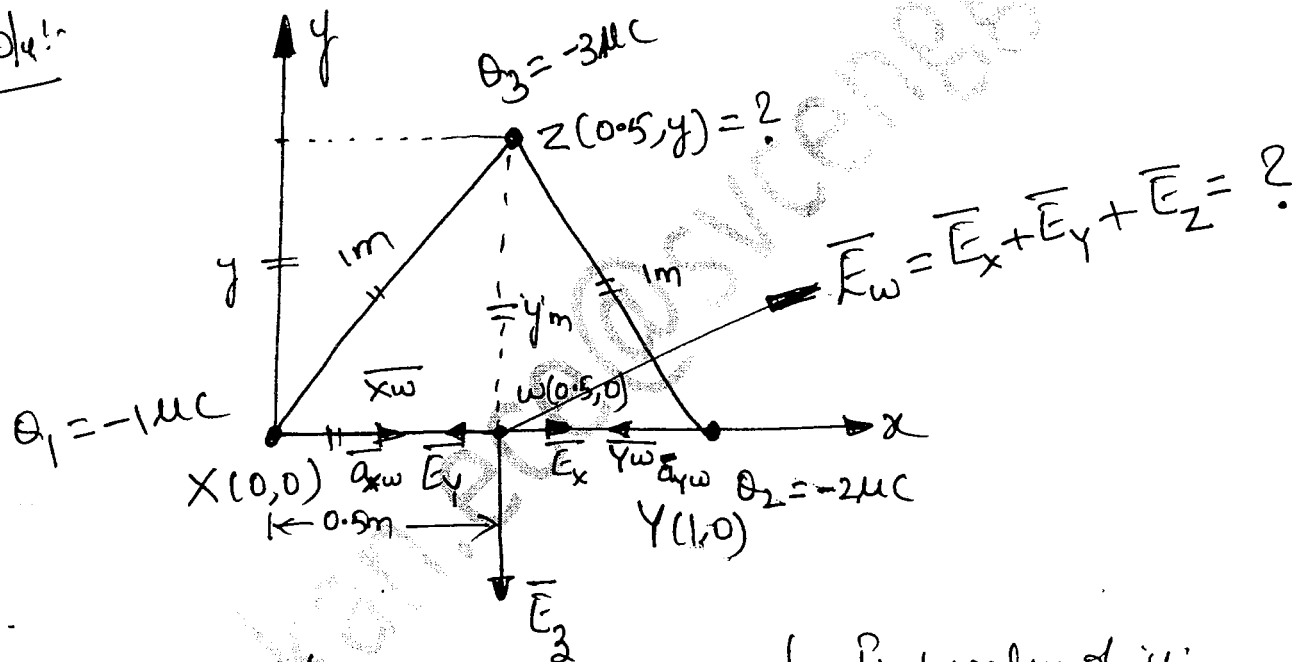 y
Q₃ = -3μC
Z(0.5, y) = ?
y
1m
1m
'y'm
E̅w = E̅x + E̅y + E̅z = ?
X̅W̅
W(0.5,0)
Q₁ = -1μC
X(0,0)
a̅xw
E̅y
E̅x
Y̅W̅
a̅yw
x
Q₂ = -2μC
0.5m
Y(1,0)
E̅₃